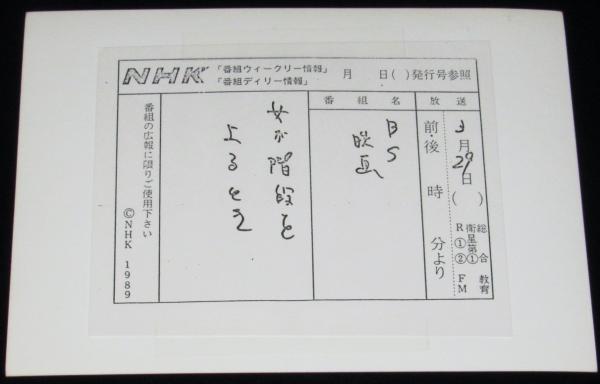 NHK 「番組ウィークリー情報」 月 日( )発行号参照
「番組デイリー情報」
放送 3月29日( )
前・後 時 分より
R 衛星第 総合
① ① 教育
② ② FM
番組名
BS
映画
女が階段を
上るとき
番組の広報に限りご使用下さい
©NHK 1989